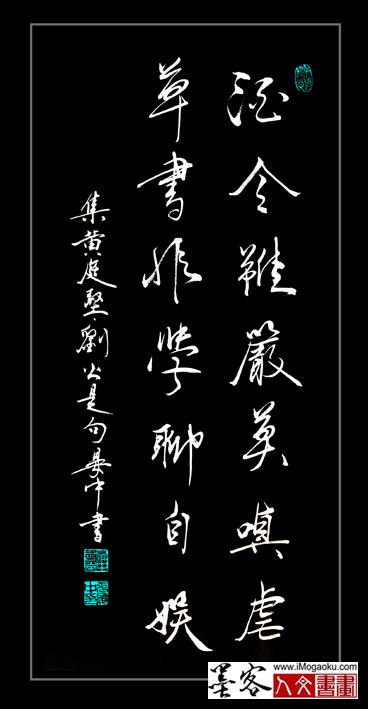 酒令雖嚴莫嗔虐
草書非學聊自娛
集黄庭堅劉公是句中書
墨客
www.iMogaoku.com
人文書畫